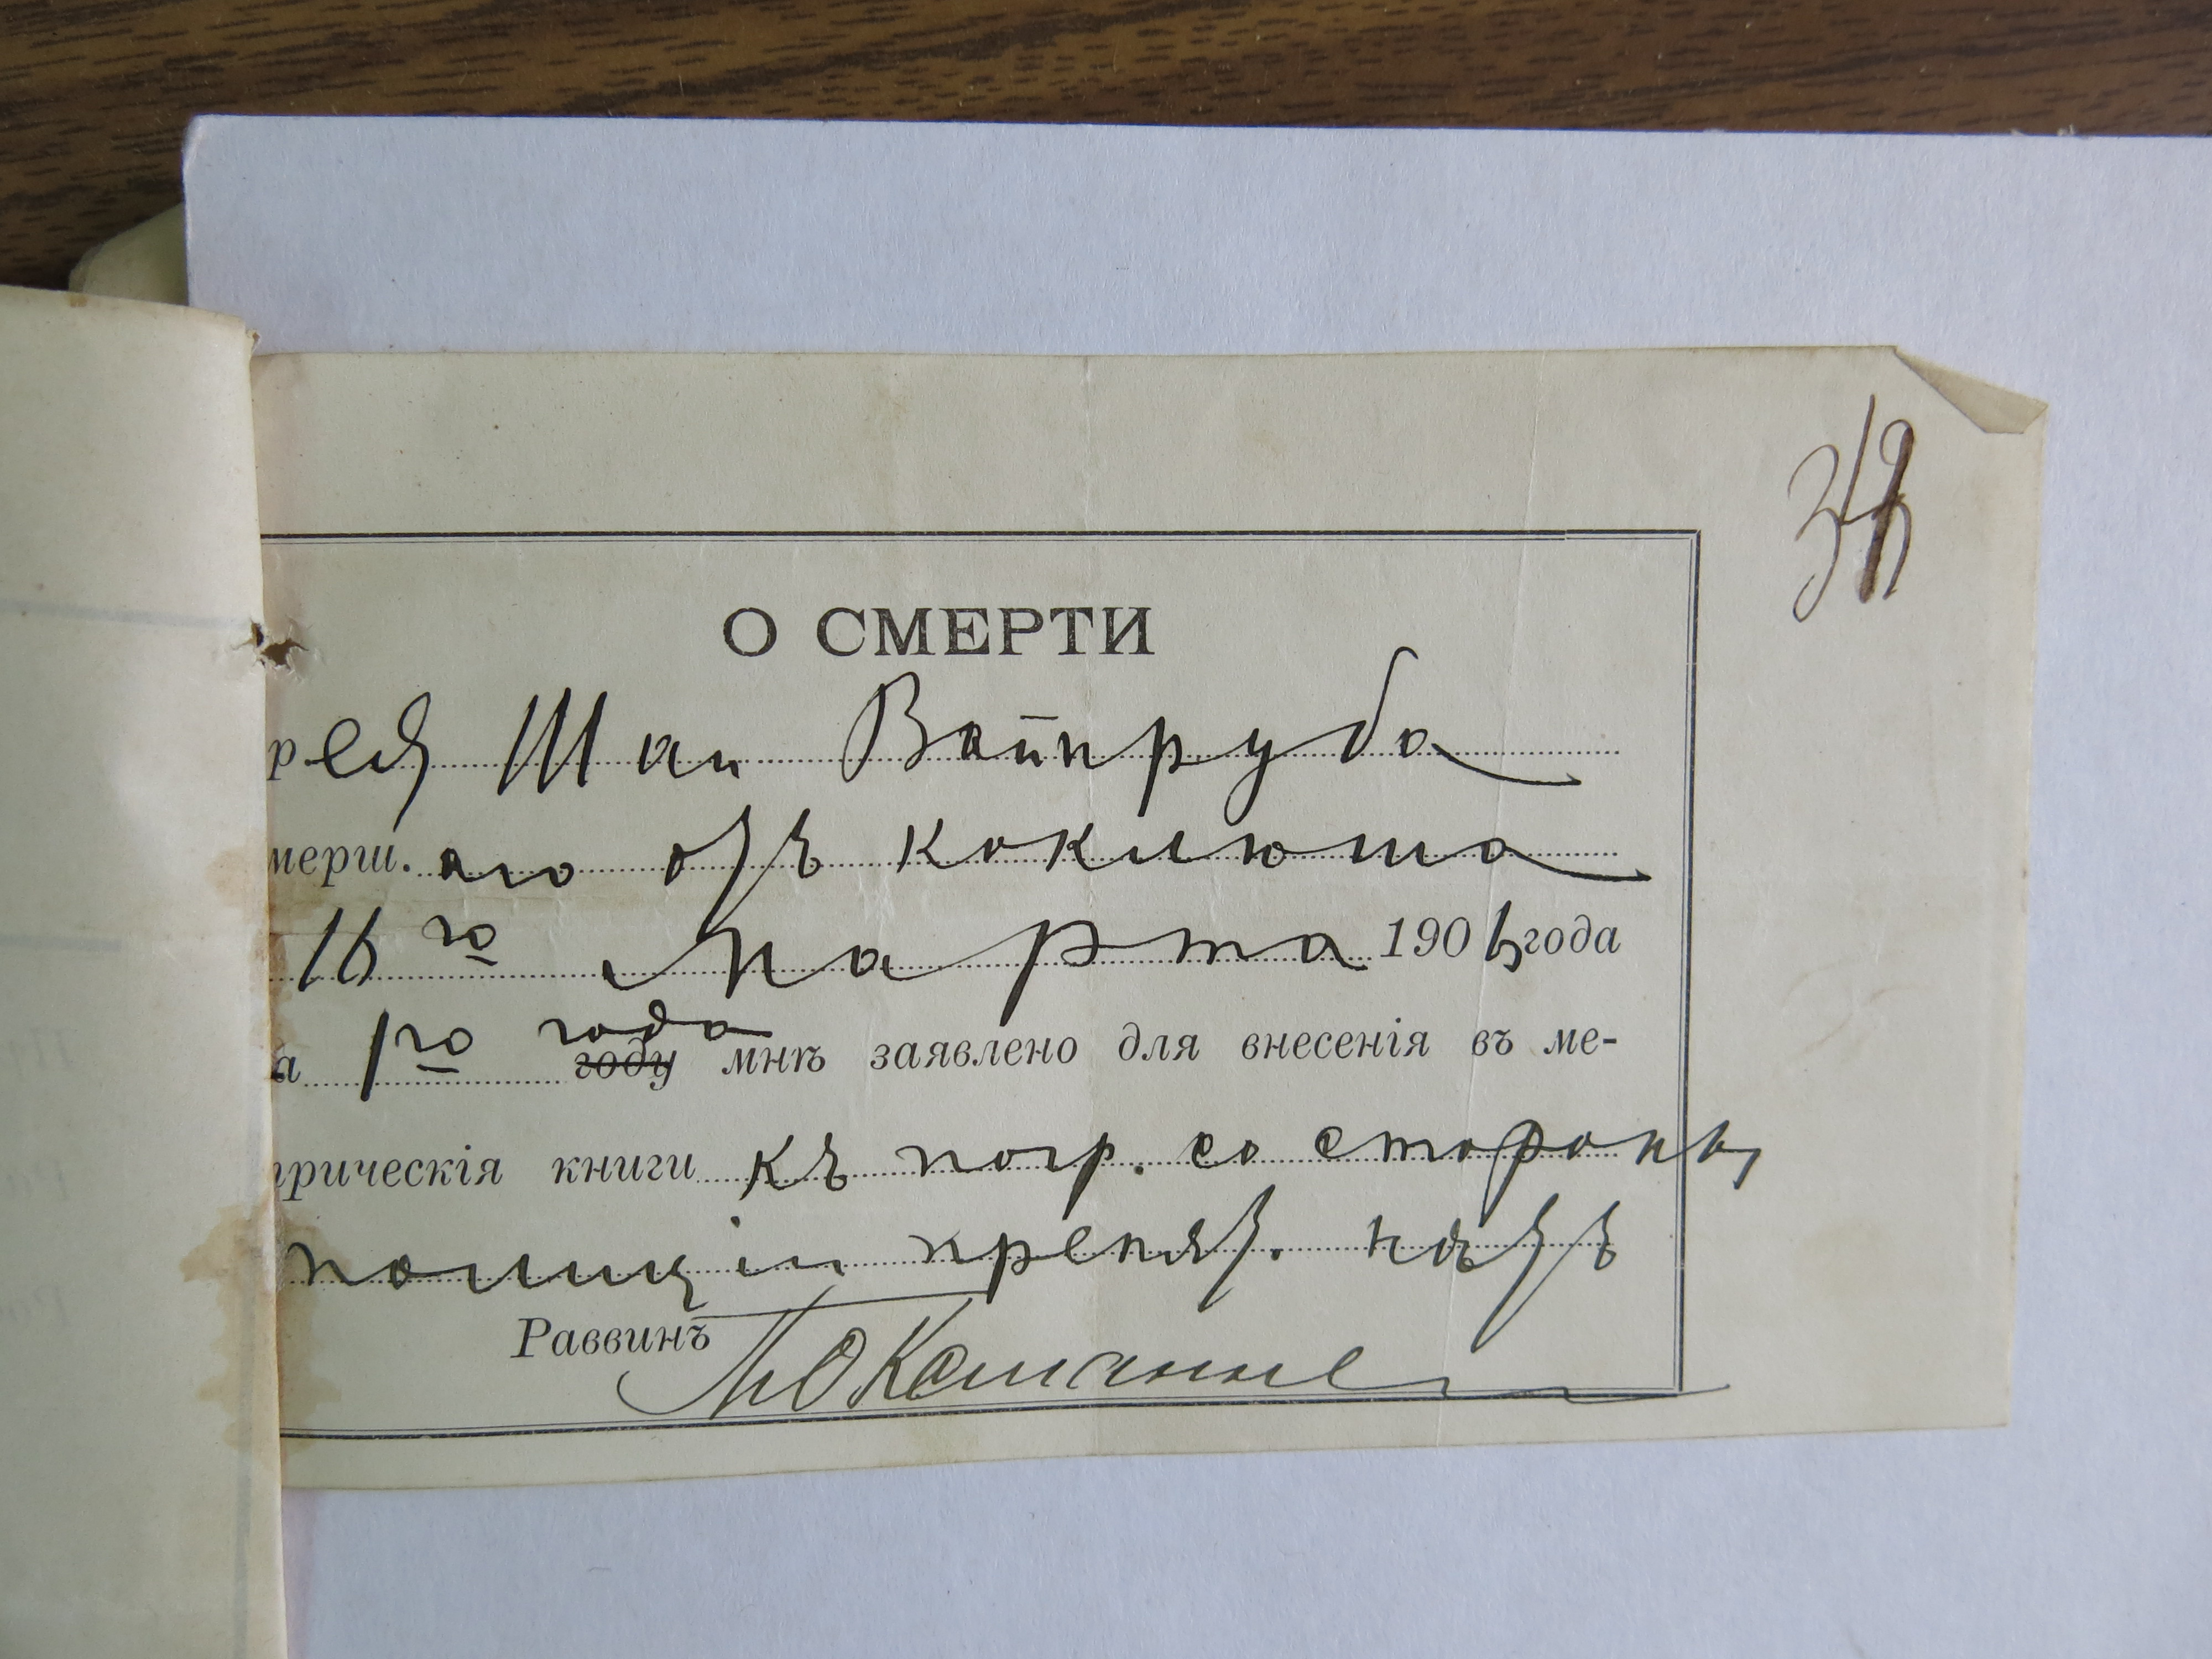 О СМЕРТИ
рея Шаи Вайнруба
мерш. аго отъ коклюша
16 го Марта 1905 года
а 1 го года году мнѣ заявлено для внесенія въ ме-
рическія книги къ погр. со стороны
полиціи препят. нѣтъ
Раввинъ